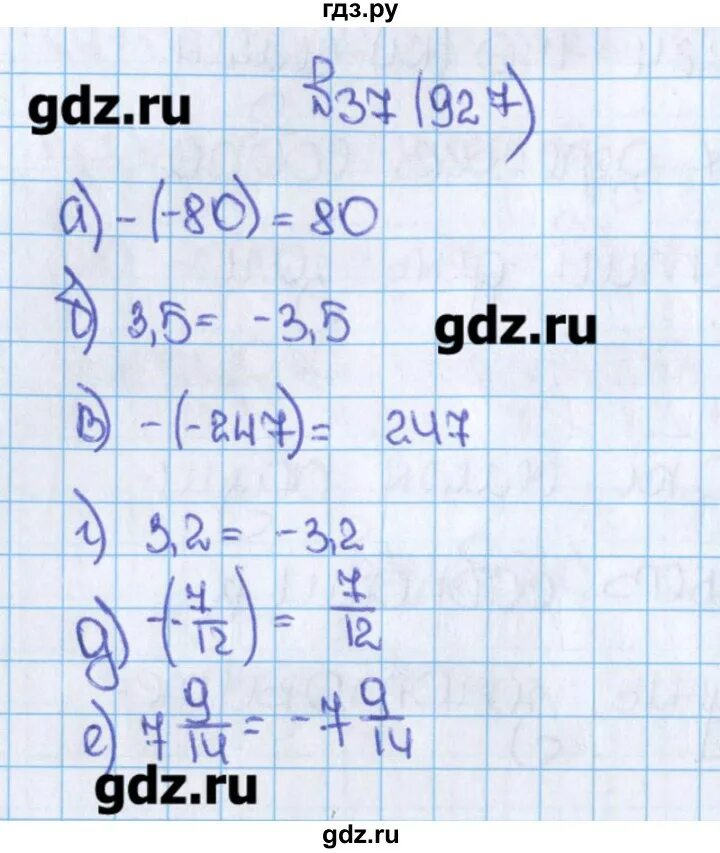 гдз.ру
gdz.ru
№37 (927)
а) -(-80) = 80
б) 3,5 = -3,5
gdz.ru
в) -(-247) = 247
г) 3,2 = -3,2
д) -(-7/12) = 7/12
е) 7 9/14 = -7 9/14
gdz.ru
gdz.ru